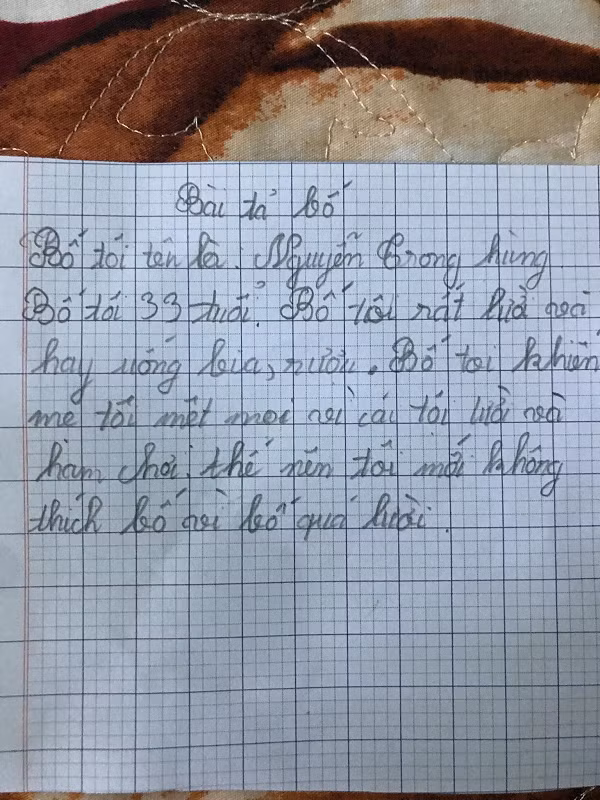 Bài tả bố
Bố tôi tên là. Nguyễn Trong hùng
Bố tôi 33 tuổi. Bố tôi rất lười và
hay uống bia, rượu. Bố toi khiến
mẹ tôi mệt mỏi vì cái tội lười và
hàm chơi. thế nên tôi mới không
thích bố vì bố quá lười.